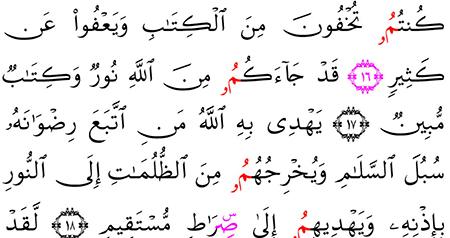 كُنتُمُۥ تُخْفُونَ مِنَ ٱلْكِتَٰبِ وَيَعْفُوا۟ عَن
كَثِيرٍ ﴿١٦﴾ قَدْ جَآءَكُمُۥ مِنَ ٱللَّهِ نُورٌ وَكِتَٰبٌ
مُّبِينٌ ﴿١٧﴾ يَهْدِى بِهِ ٱللَّهُ مَنِ ٱتَّبَعَ رِضْوَٰنَهُۥ
سُبُلَ ٱلسَّلَٰمِ وَيُخْرِجُهُمُۥ مِنَ ٱلظُّلُمَٰتِ إِلَى ٱلنُّورِ
بِإِذْنِهِۦ وَيَهْدِيهِمُۥ إِلَىٰ صِۜرَٰطٍ مُّسْتَقِيمٍ ﴿١٨﴾ لَّقَدْ